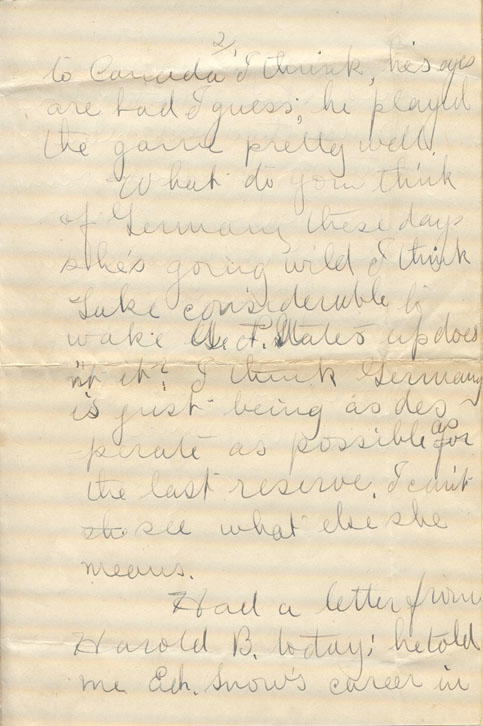 2/
to Canada, I think, he's eyes
are bad I guess; he played
the game pretty well.
What do you think
of Germany these days
she's going wild I think
Take considerable to
wake States up does
n't it? I think Germany
is just being as des
perate as possible as for
the last reserve. I can't
see what else she
means.
Had a letter from
Harold B. today; he told
me Ed. Snow's career in